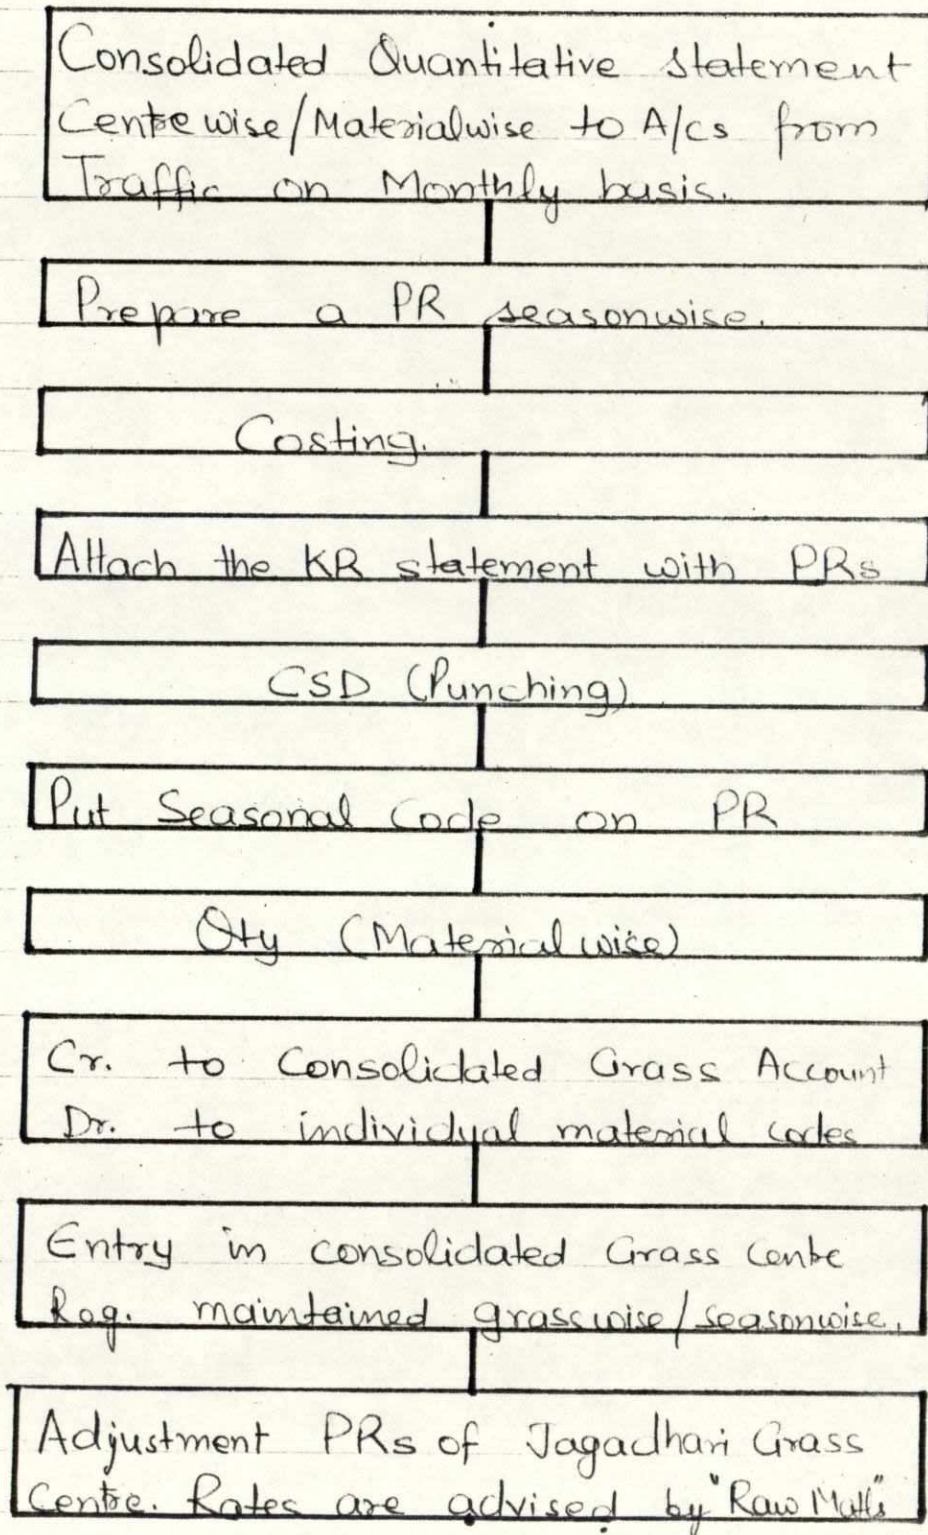 Consolidated Quantitative Statement
Centrewise/Materialwise to A/cs from
Traffic on Monthly basis.
Prepare a PR seasonwise.
Costing.
Attach the KR statement with PRs
CSD (Punching)
Put Seasonal Code on PR
Qty (Materialwise)
Cr. to Consolidated Grass Account
Dr. to individual material codes
Entry in consolidated Grass Centre
Reg. maintained grasswise/seasonwise.
Adjustment PRs of Jagadhari Grass
Centre. Rates are advised by "Raw Matls"